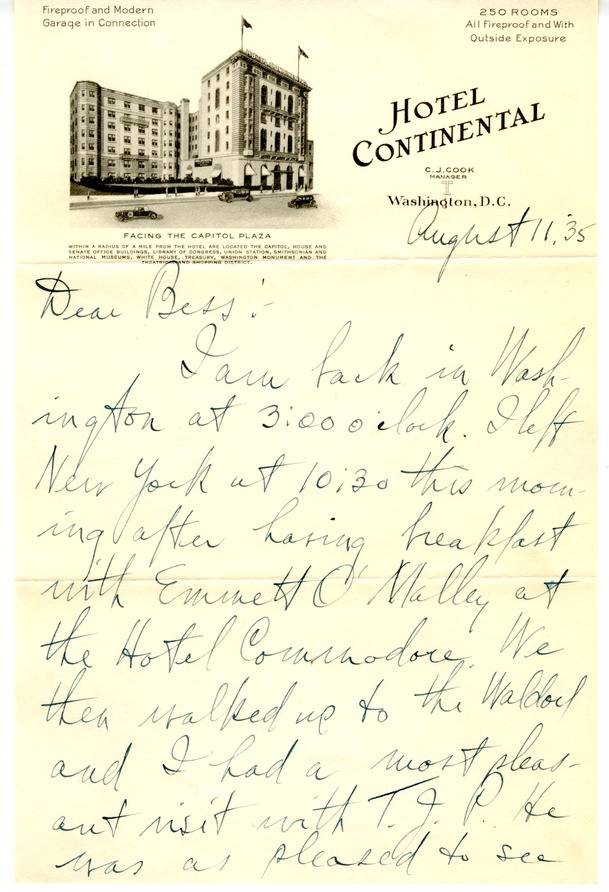 Fireproof and Modern
Garage in Connection
250 ROOMS
All Fireproof and With
Outside Exposure
HOTEL
CONTINENTAL
C. J. COOK
MANAGER
Washington, D.C.
FACING THE CAPITOL PLAZA
WITHIN A RADIUS OF A MILE FROM THE HOTEL ARE LOCATED THE CAPITOL, HOUSE AND
SENATE OFFICE BUILDINGS, LIBRARY OF CONGRESS, UNION STATION, SMITHSONIAN AND
NATIONAL MUSEUMS, WHITE HOUSE, TREASURY, WASHINGTON MONUMENT AND THE
THEATRICAL AND SHOPPING DISTRICT.
August 11, '35
Dear Bess:-
I am back in Wash-
ington at 3:00 o'clock. I left
New York at 10:30 this morn-
ing after having breakfast
with Emmett O'Malley at
the Hotel Commodore. We
then walked up to the Waldorf
and I had a most pleas-
ant visit with T.J.P. He
was as pleased to see